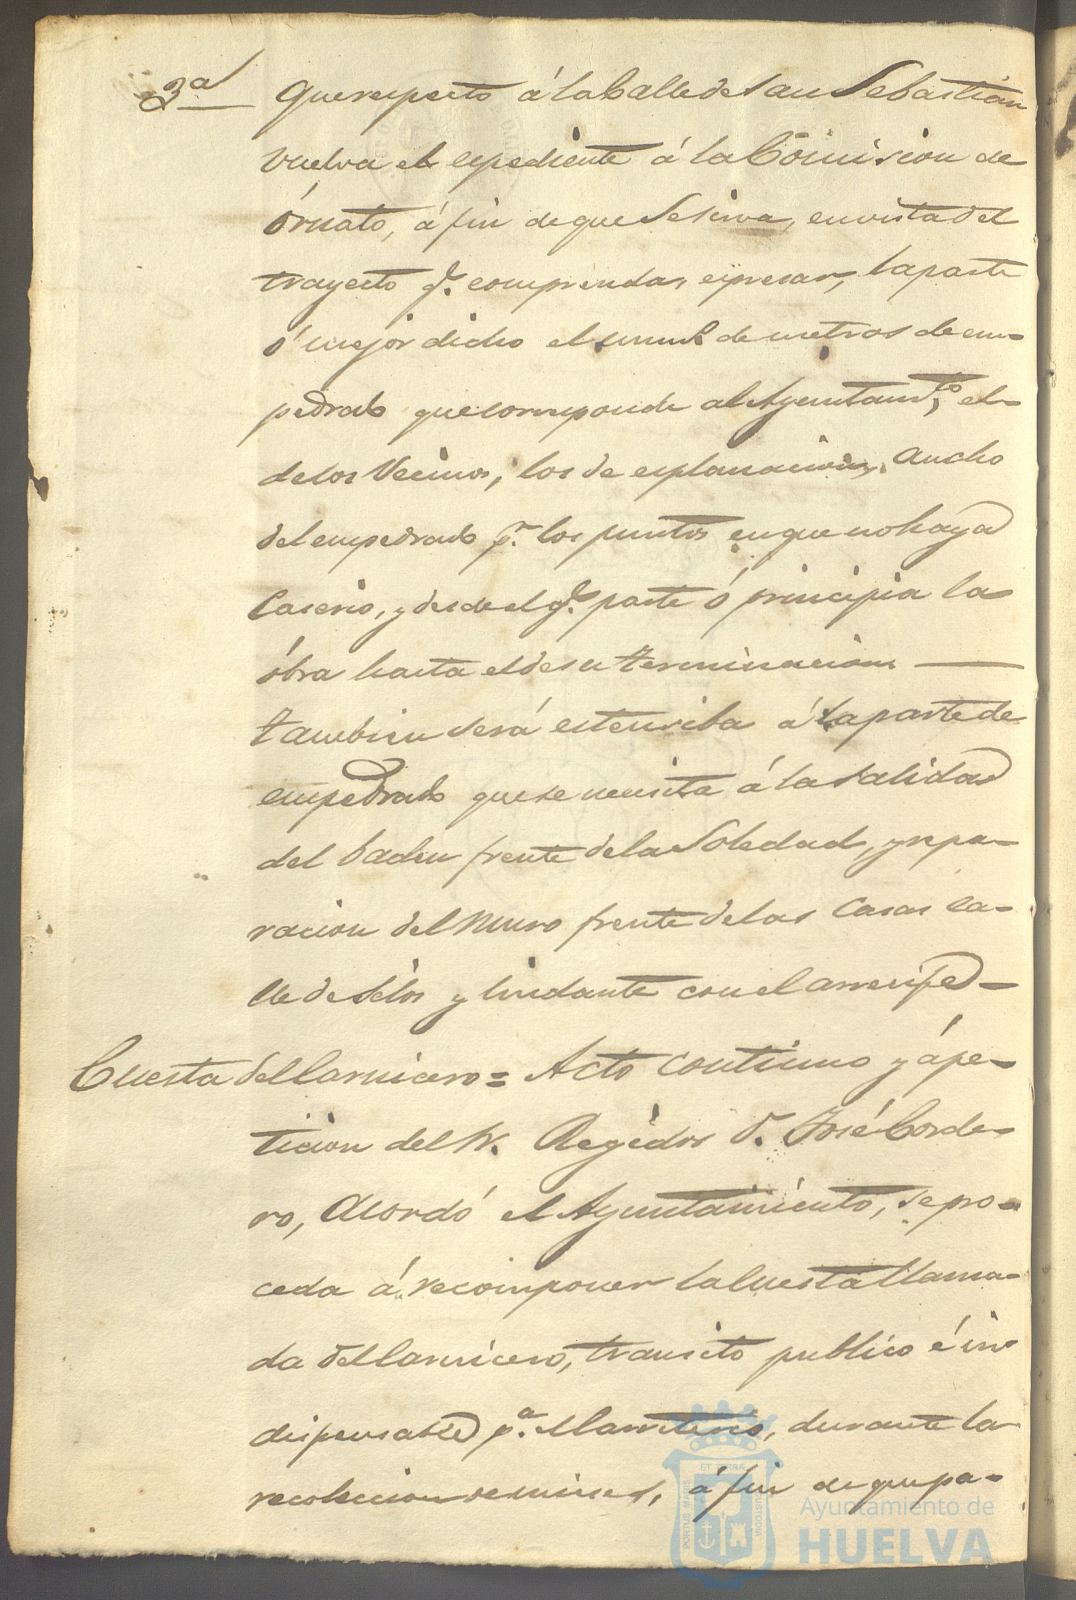 3ª Que respecto á la Calle de San Sebastian
vuelva el espediente á la Comision de
órnato, á fin de que se sirva, en vista del
trayecto q.e comprenda, espresar, la parte
ó mejor dicho el num.o de metros de em-
pedrado que corresponde al Ayuntam.to, el
de los Vecinos, los de esplanacion, ancho
del empedrado p.r los puntos en que no haya
Caserio, y desde el q.e parte ó principia la
óbra hasta el de su terminacion —
tambien será estensiba á la parte de
empedrado que se necesita á la salida
del baden frente de la Soledad, y repa-
racion del muro frente de las Casas ca-
lle de Silos y lindante con el arrecife -
Cuesta del Carnicero = Acto continuo y á pe-
ticion del Sr. Regidor D. José Corde-
ro, Acordó el Ayuntamiento, se pro-
ceda á recomponer la Cuesta llama-
da del Carnicero, transito publico é in-
dispensable p.a el carreteris, durante la
recoleccion de mieses, á fin de que pa-
PORTUS MARIS ET TERRÆ CUSTODIA
Ayuntamiento de
HUELVA